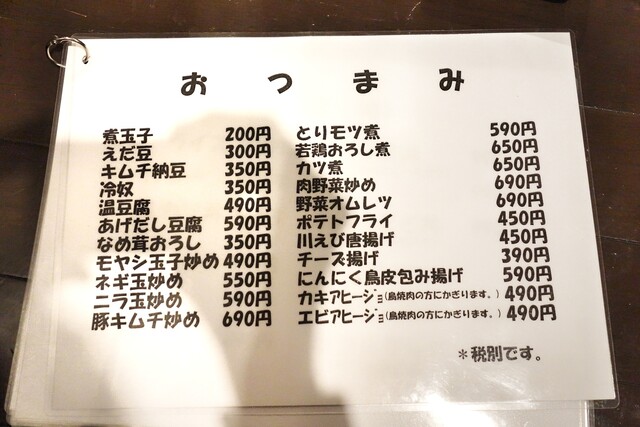 おつまみ
煮玉子 200円
えだ豆 300円
キムチ納豆 350円
冷奴 350円
温豆腐 490円
あげだし豆腐 590円
なめ茸おろし 350円
モヤシ玉子炒め 490円
ネギ玉炒め 550円
ニラ玉炒め 590円
豚キムチ炒め 690円
とりモツ煮 590円
若鶏おろし煮 650円
カツ煮 650円
肉野菜炒め 690円
野菜オムレツ 690円
ポテトフライ 450円
川えび唐揚げ 450円
チーズ揚げ 390円
にんにく鳥皮包み揚げ 590円
カキアヒージョ(鳥焼肉の方にかぎります。) 490円
エビアヒージョ(鳥焼肉の方にかぎります。) 490円
＊税別です。